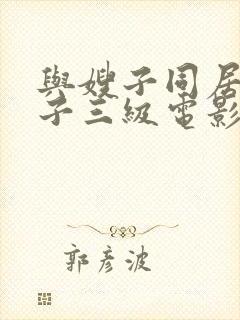 與嫂子同居
子三級電影
郭彥波